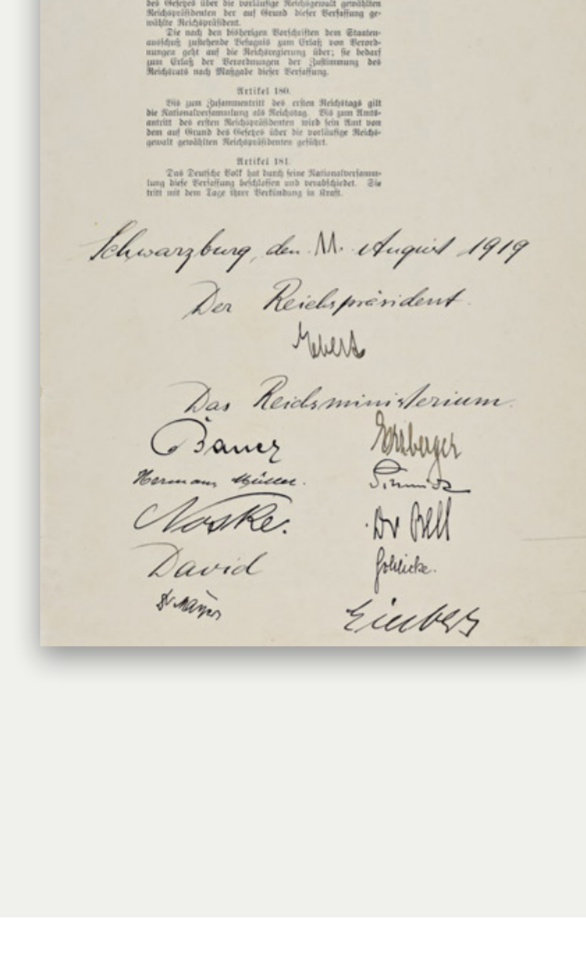 des Gesetzes über die vorläufige Reichsgewalt gewählten
Reichspräsidenten der auf Grund dieser Verfassung ge-
wählte Reichspräsident.
Die nach den bisherigen Vorschriften dem Staaten-
ausschuß zustehende Befugnis zum Erlaß von Verord-
nungen geht auf die Reichsregierung über; sie bedarf
zum Erlaß der Verordnungen der Zustimmung des
Reichsrats nach Maßgabe dieser Verfassung.
Artikel 180.
Bis zum Zusammentritt des ersten Reichstags gilt
die Nationalversammlung als Reichstag. Bis zum Amts-
antritt des ersten Reichspräsidenten wird sein Amt von
dem auf Grund des Gesetzes über die vorläufige Reichs-
gewalt gewählten Reichspräsidenten geführt.
Artikel 181.
Das Deutsche Volk hat durch seine Nationalversamm-
lung diese Verfassung beschlossen und verabschiedet. Sie
tritt mit dem Tage ihrer Verkündung in Kraft.
Schwarzburg, den 11. August 1919
Der Reichspräsident.
Ebert
Das Reichsministerium.
Bauer Erzberger
Hermann Müller. Schmidt
Noske. Dr Bell
David Schlicke.
Dr Mayer Giesberts